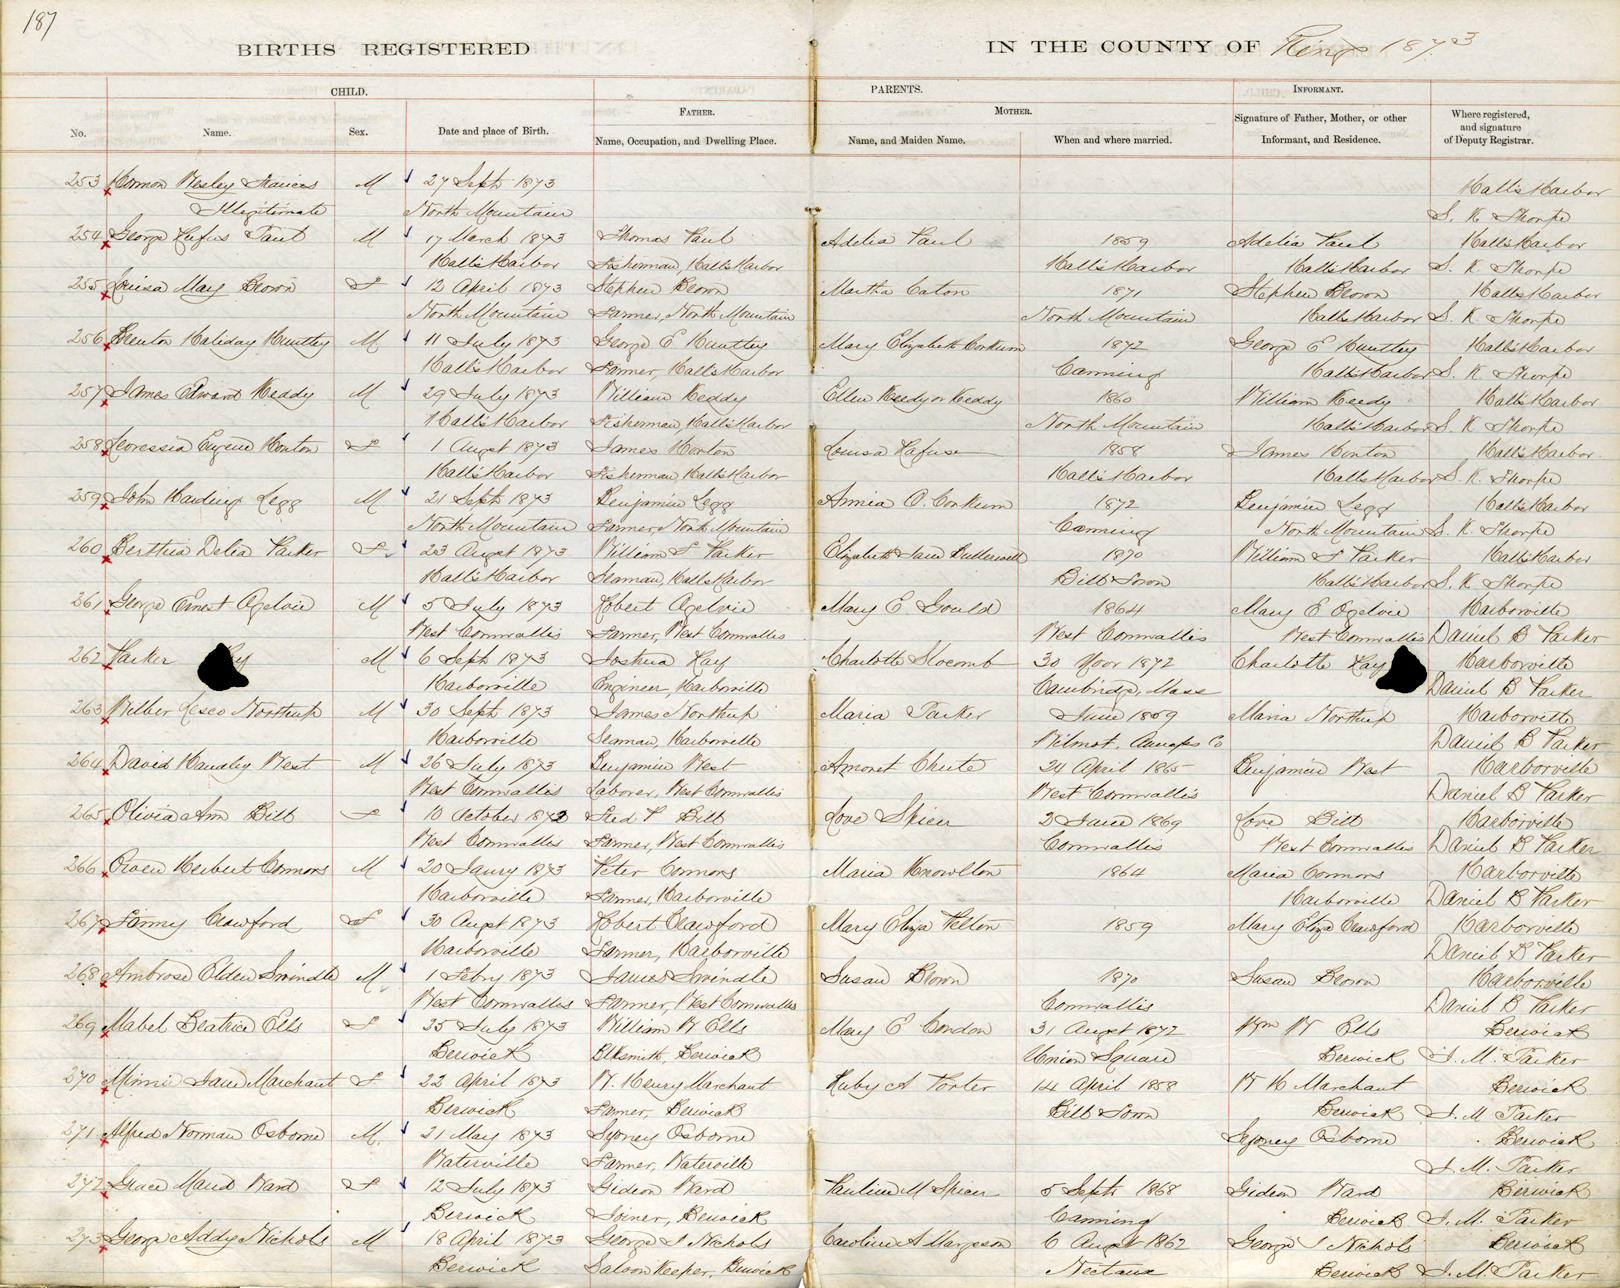 187
BIRTHS REGISTERED IN THE COUNTY OF Kings 1873
CHILD. PARENTS. INFORMANT.
FATHER. MOTHER.
No. Name. Sex. Date and place of Birth. Name, Occupation, and Dwelling Place. Name, and Maiden Name. When and where married. Signature of Father, Mother, or other Informant, and Residence. Where registered, and signature of Deputy Registrar.
253 Harmon Wesley Francis M 27 Sept 1873 Halls Harbor
Illegitimate North Mountain S. K Thorpe
254 George Rufus Paul M 17 March 1873 Thomas Paul Adelia Paul 1859 Adelia Paul Halls Harbor
Halls Harbor Fisherman, Halls Harbor Halls Harbor Halls Harbor S. K Thorpe
255 Louisa May Brown F 12 April 1873 Stephen Brown Martha Eaton 1871 Stephen Brown Halls Harbor
North Mountain Farmer, North Mountain North Mountain Halls Harbor S. K Thorpe
256 Benton Haliday Huntley M 11 July 1873 George E Huntley Mary Elizabeth Corkum 1872 George E Huntley Halls Harbor
Halls Harbor Farmer, Halls Harbor Canning Halls Harbor S. K Thorpe
257 James Edward Keddy M 29 July 1873 William Keddy Ellen Keedy or Keddy 1860 William Keedy Halls Harbor
Halls Harbor Fisherman, Halls Harbor North Mountain Halls Harbor S. K Thorpe
258 Eugene Honton F 1 Augst 1873 James Horton Louisa Rafuse 1858 James Honton Halls Harbor
Halls Harbor Fisherman Halls Harbor Halls Harbor Halls Harbor S. K. Thorpe
259 John Harding Legg M 21 Sept 1873 Benjamin Legg Annia O. Corkum 1872 Benjamin Legg Halls Harbor
North Mountain Farmer, North Mountain Canning North Mountain S. K. Thorpe
260 Berttria Delia Parker F 23 Augst 1873 William F Parker Elizabeth Jane 1870 William F Parker Halls Harbor
Halls Harbor Seaman, Halls Harbor Bill Town Halls Harbor S. K. Thorpe
261 George Ernest Ogelvie M 5 July 1873 Robert Ogelvie Mary E Gould 1864 Mary E Ogelvie Harborville
West Cornwallis Farmer, West Cornwallis West Cornwallis West Cornwallis Daniel B Parker
262 Parker Ray M 6 Sept 1873 Joshua Ray Charlotte Slocomb 30 Novr 1872 Charlotte Ray Harborville
Harborville Engineer, Harborville Cambridge, Mass Daniel B Parker
263 Wilber Northup M 30 Sept 1873 James Northup Maria Parker June 1859 Maria Northup Harborville
Harborville Seaman, Harborville Wilmot, Annaps Co Daniel B Parker
264 David Handley West M 26 July 1873 Benjamin West Amoret Chute 24 April 1865 Benjamin West Harborville
West Cornwallis Laborer, West Cornwallis West Cornwallis Daniel B Parker
265 Olivia Ann Bill F 10 October 1873 Fred P Bill Love Skien 2 June 1869 Love Bill Harborville
West Cornwallis Farmer, West Cornwallis Cornwallis West Cornwallis Daniel B Parker
266 Owen Herbert Connors M 20 Janry 1873 Peter Connors Maria Knowlton 1864 Maria Connors Harborville
Harborville Farmer, Harborville Harborville Daniel B Parker
267 Fanny Crawford F 30 Augst 1873 Robert Crawford Mary Eliza Pelton 1859 Mary Eliza Crawford Harborville
Harborville Farmer, Harborville Daniel B Parker
268 Ambrose Elden Swindle M 1 Febry 1873 James Swindle Susan Brown 1870 Susan Brown Harborville
West Cornwallis Farmer, West Cornwallis Cornwallis Daniel B Parker
269 Mabel Beatrice Ells F 25 July 1873 William W Ells Mary E Condon 31 Augst 1872 Wm W Ells Berwick
Berwick Blksmith, Berwick Union Square Berwick J. M. Parker
270 Minni Jane Marchant F 22 April 1873 W. Henry Marchant Ruby A Porter 14 April 1858 W H Marchant Berwick
Berwick Farmer, Berwick Bill Town Berwick J. M Parker
271 Alfred Norman Osborne M 21 May 1873 Sydney Osborne Sydney Osborne Berwick
Waterville Farmer, Waterville J. M. Parker
272 Grace Maud Ward F 12 July 1873 Gideon Ward Pauline M Spicer 5 Sept 1868 Gideon Ward Berwick
Berwick Joiner, Berwick Canning Berwick J. M. Parker
273 George Addy Nichols M 18 April 1873 George J Nichols Caroline A Margeson 6 Augst 1862 George J Nichols Berwick
Berwick Saloon Keeper, Berwick Nictaux Berwick J. M. Parker